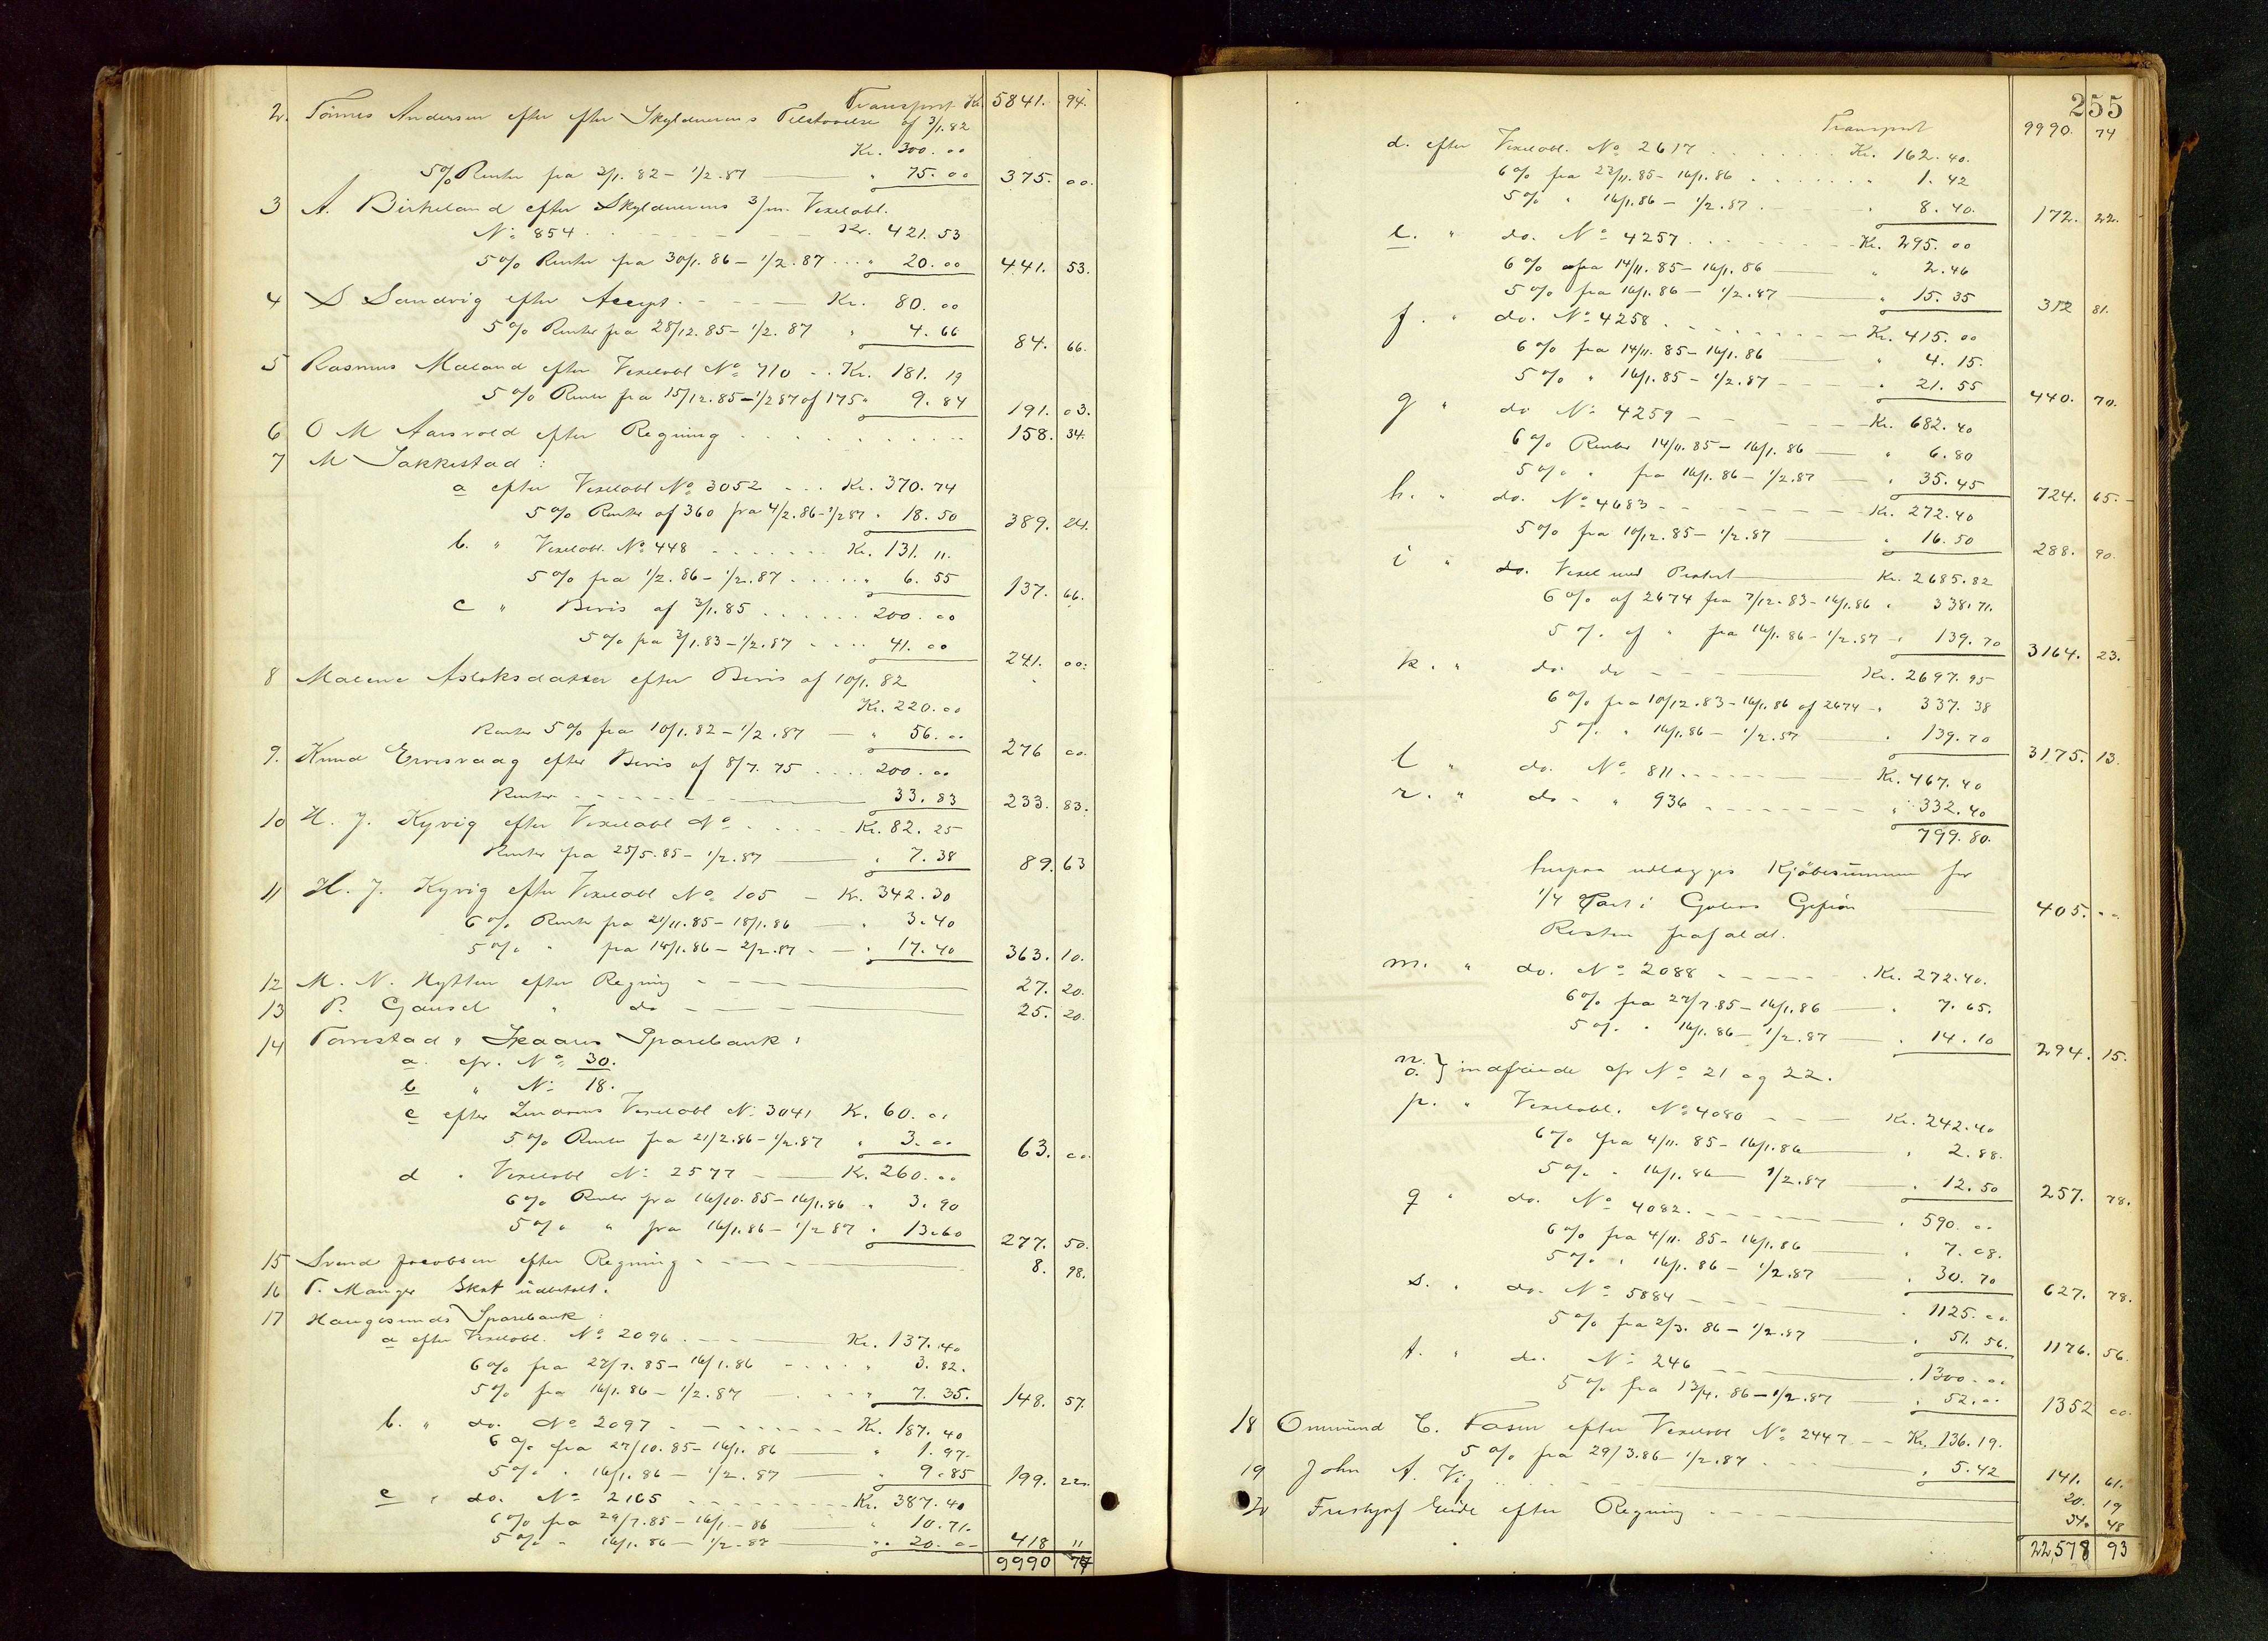 Transport Kr. 5841. 94.
2. Tönnes Andersen efter Skyldnerens Tilstaaelse af 3/1.82
Kr. 300.00
5% Renter fra 3/1.82 - 1/2.87 " 75.00 375.00.
3 A. Birkeland efter Skyldnerens 3/m. Vexelobl.
No 854 Kr. 421.53
5% Renter fra 30/1.86 - 1/2.87 " 20.00 441.53.
4 S Sandvig efter Accept. Kr. 80.00
5% Renter fra 28/12.85 - 1/2.87 " 4.66 84.66.
5 Rasmus Maland efter Vexelobl No 710 Kr. 181.19
5% Renter fra 15/12.85 - 1/2 87 af 175 " 9.84 191.03.
6 O M Aarsvold efter Regning 158.34.
7 M Sakkestad :
a efter Vexelobl No 3052 Kr. 370.74
5% Renter af 360 fra 4/2.86 - 1/2 87 " 18.50 389.24.
b. " Vexelobl. No 448 Kr. 131.11.
5% fra 1/2.86 - 1/2.87 " 6.55 137.66.
c " Bevis af 3/1.85 200.00
5% fra 3/1.83 - 1/2.87 41.00 241.00.
8 Malene Aslaksdatter efter Bevis af 10/1.82
Kr. 220.00
Renter 5% fra 10/1.82 - 1/2.87 " 56.00 276 00.
9. Knud efter Bevis af 8/7.75 200.00
Renter 33.83 233.83.
10 H. J. Kyvig efter Vexelobl No Kr. 82.25
Renter fra 25/5.85 - 1/2.87 " 7.38 89.63
11 H. J. Kyvig efter Vexelobl No 105 - Kr. 342.30
6% Renter fra 21/11.85 - 18/1.86 " 3.40
5% " fra 18/1.86 - 2/2.87 " 17.40 363.10.
12 M. N. Hytten efter Regning 27.20.
13 P. Gausel " do 25.20.
14 Torvestad & Skaare Sparebank :
a. efr. No 30.
b " No 18.
c efter Vexelobl No 3041 Kr. 60.00
5% Renter fra 21/2.86 - 1/2.87 " 3.00 63.00.
d " Vexelobl No 2577 Kr. 260.00
6% Renter fra 16/10.85 - 16/1.86 " 3.90
5% " fra 16/1.86 - 1/2 87 " 13.60 277.50.
15 Svend Jacobsen efter Regning 8.98.
16 T. Manger Skat udbetalt.
17 Haugesunds Sparebank :
a efter Vexelobl. No 2096 Kr. 137.40
6% fra 27/7.85 - 16/1.86 " 3.82.
5% fra 16/1.86 - 1/2.87 " 7.35. 148.57.
b. " do. No 2097 Kr. 187.40
6% fra 27/10.85 - 16/1.86 " 1.97.
5% " 16/1.86 - 1/2.87 " 9.85 199.22.
c " do. No 2165 Kr. 387.40
6% fra 29/7.85 - 16/1.86 " 10.71.
5% " 16/1.86 - 1/2.87 " 20.00 418 11
9990 74
255
Transport 9990. 74
d. efter Vexelobl. No 2617 Kr. 162.40.
6% fra 23/11.85 - 16/1.86 " 1.42
5% " 16/1.86 - 1/2.87 " 8.40. 172.22.
e. " do. No 4257 Kr. 295.00
6% fra 14/11.85 - 16/1.86 " 2.46
5% fra 16/1.86 - 1/2.87 " 15.35 312 81.
f. " do. No 4258 Kr. 415.00
6% fra 14/11.85 - 16/1.86 " 4.15.
5% " 16/1.85 - 1/2.87 " 21.55 440.70.
g " do No 4259 Kr. 682.40
6% Renter 14/11.85 - 16/1.86 " 6.80
5% " fra 16/1.86 - 1/2.87 " 35.45 724.65.
h. " do. No 4683 Kr. 272.40
5% fra 10/12.85 - 1/2.87 " 16.50 288.90.
i " do. Vexel med Protest Kr. 2685.82
6% af 2674 fra 7/12.83 - 16/1.86 " 338.71.
5% af " fra 16/1.86 - 1/2.87 " 139.70 3164.23.
k. " do. do Kr. 2697.95
6% fra 10/12.83 - 16/1.86 af 2674 " 337.38
5% " 16/1.86 - 1/2.87 " 139.70 3175.13.
l " do. No 811 Kr. 467.40
r. " do " 936 " 332.40
799.80.
herpaa udlægges Kjöbesummen for
1/4 Part i Galeas Gefion 405.00
Resten frafaldt.
m. " do. No 2088 Kr. 272.40.
6% fra 27/7.85 - 16/1.86 " 7.65.
5% " 16/1.86 - 1/2.87 " 14.10 294.15.
n. o. } indfriede efr No 21 og 22.
p. " Vexelobl. No 4080 Kr. 242.40
6% fra 4/11.85 - 16/1.86 " 2.88.
5% " 16/1.86 - 1/2.87 " 12.50 257.78.
q " do. No 4082. " 590.00
6% fra 4/11.85 - 16/1.86 " 7.08.
5% " 16/1.86 - 1/2.87 " 30.70 627.78.
s. " do. No 5884 " 1125.00.
5% fra 2/3.86 - 1/2.87 " 51.56. 1176.56.
t. " do. No 246 " 1300.00
5% fra 13/4.86 - 1/2.87 " 52.00 1352 00.
18 Ommund C. efter Vexelobl No 2447 Kr. 136.19.
5% fra 29/3.86 - 1/2.87 " 5.42 141.61.
19 John A. Vig 20.19
20 Eide efter Regning 54.48
22,578 93